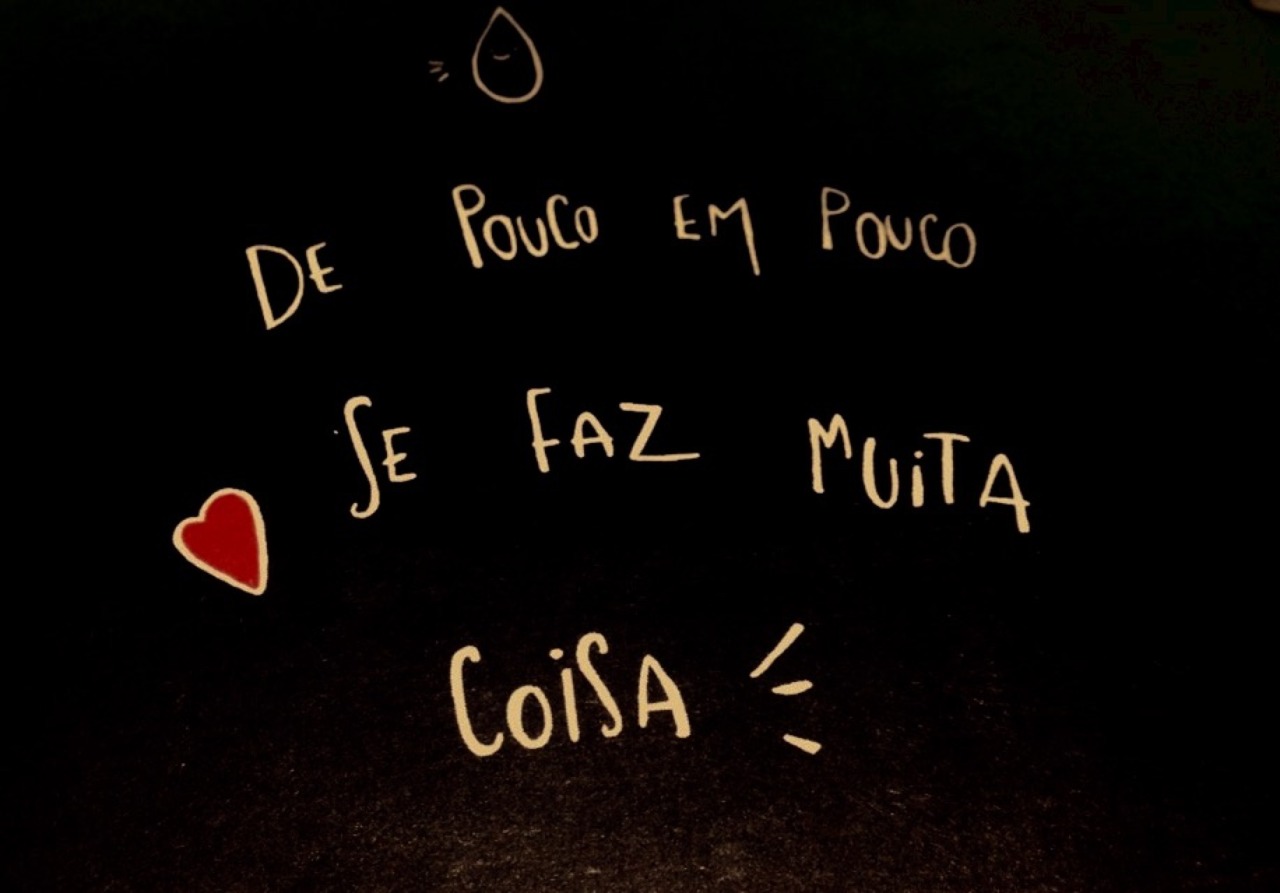 DE POUCO EM POUCO
SE FAZ MUiTA
COiSA